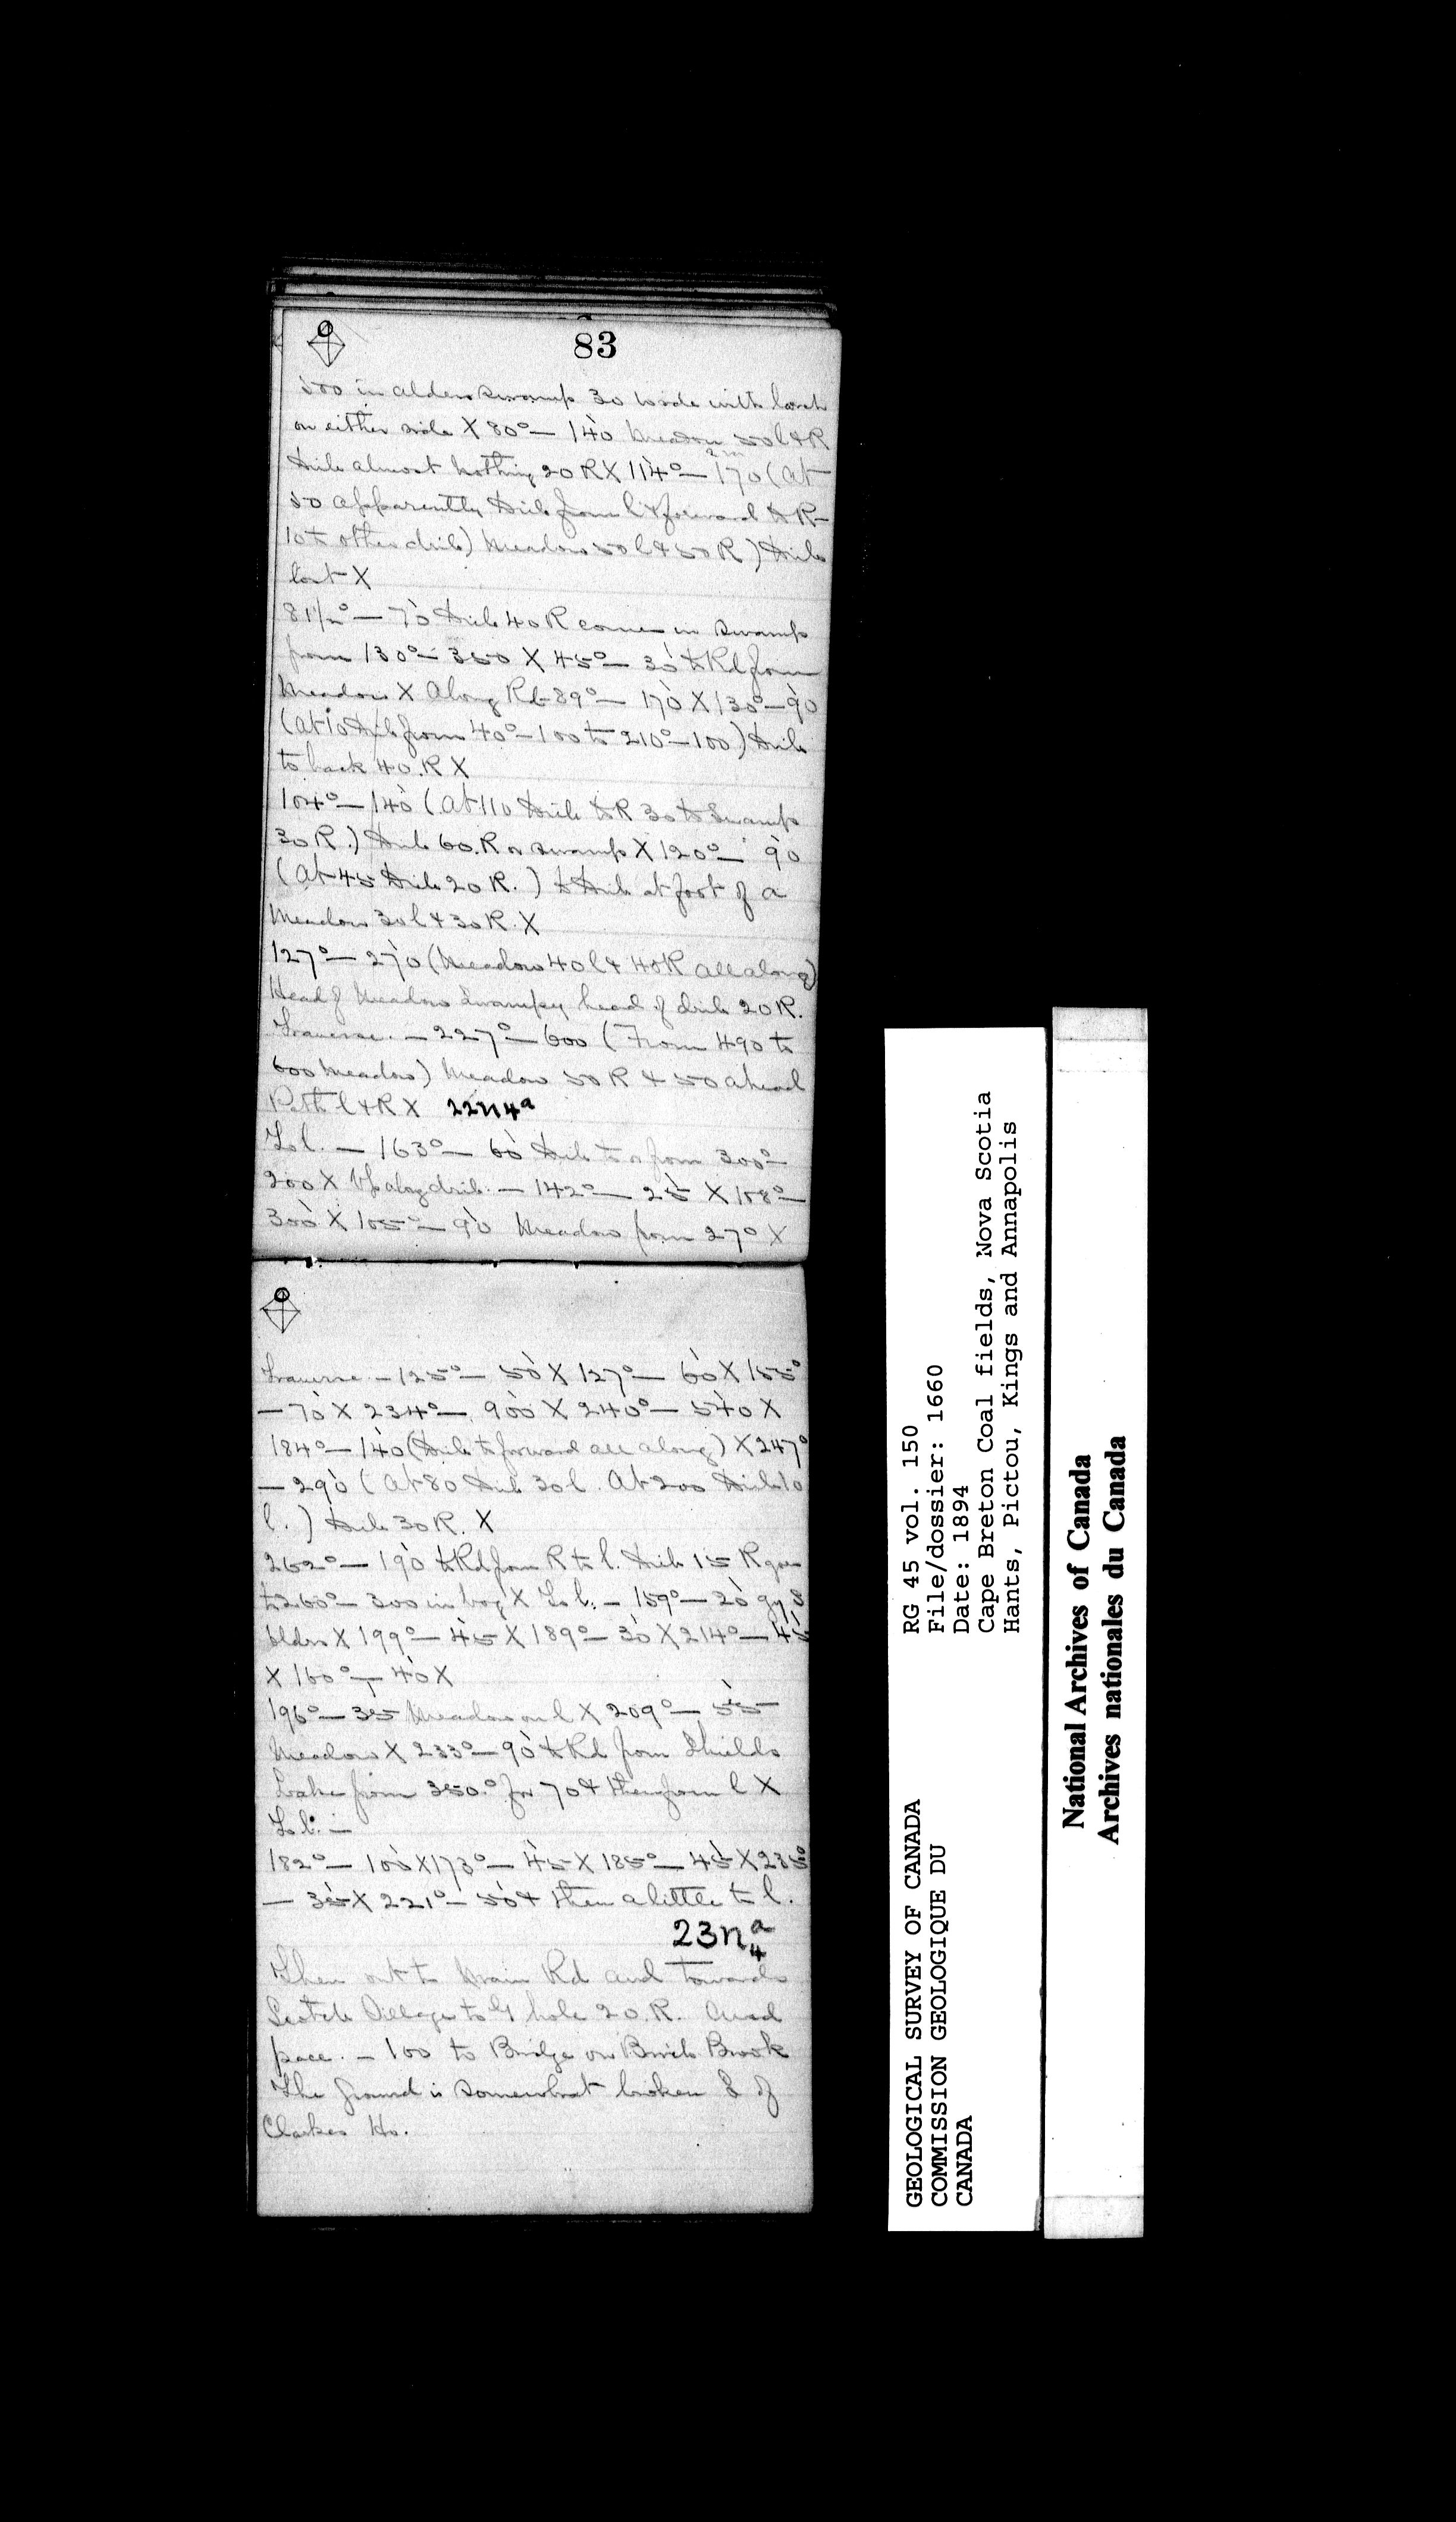 83
500 in alder swamp 30 wide with larch
on either side X 80° — 140 Meadow 50 l & R
almost nothing 20 R X 114° — 170 (At
50 apparently from l & forward to R
10 to other ) Meadow 50 l & 50 R )
lost X
81½° — 70 40 R comes in swamp
from 130° — 350 X 45° — 30 to Rd from
Meadow X Along Rd 89° — 170 X 130° — 90
(at 10 from 40° — 100 to 210° — 100)
to back 40 R X
104° — 140 (At 110 to R 30 to Swamp
30 R.) 60 R swamp X 120° — 90
(At 45 20 R.) to at foot of a
Meadow 30 l & 30 R. X
127° — 270 (Meadow 40 l & 40 R all along)
Head of Meadow swampy head of 20 R.
Traverse. — 227° — 600 (From 490 to
600 Meadow) Meadow 50 R & 50 ahead
Path l & R X 22n4a
To l. — 163° — 60 to or from 300° —
200 X Up along — 142° — 25 X 108° —
300 X 105° — 90 Meadow from 270 X
Traverse — 125° — 50 X 127° — 60 X 155°
— 70 X 234° — 900 X 240° — 570 X
184° — 140 ( to forward all along) X 247°
— 290 (At 80 30 l. At 200 10
l.) 30 R. X
262° — 190 to Rd from R to l. 15 R goes
to 260° — 300 in bog X To l: — 159° — 20 gy S
bldrs X 199° — 45 X 189° — 30 X 214° — 45
X 160° — 40 X
196° — 35 Meadow on l X 209° — 55
Meadow X 233° — 90 to Rd from Shields
Lake from 350° for 70 & then from l X
To l: —
182° — 100 X 173° — 45 X 185° — 45 X 235°
— 35 X 221° — 50 & then a little to l.
23na4
Then out to Main Rd and towards
Scotch Village to hole 20 R.
pace. — 100 to Bridge on Brook
The ground is somewhat broken S of
Clarkes Ho.
GEOLOGICAL SURVEY OF CANADA
COMMISSION GEOLOGIQUE DU
CANADA
RG 45 vol. 150
File/dossier: 1660
Date: 1894
Cape Breton Coal fields, Nova Scotia
Hants, Pictou, Kings and Annapolis
National Archives of Canada
Archives nationales du Canada